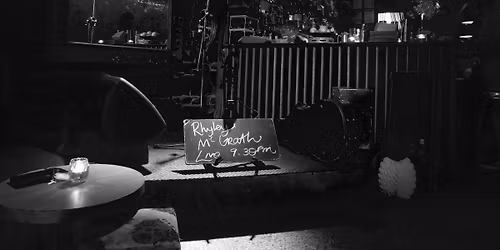 Rhyley
McGrath
Live 9.30pm